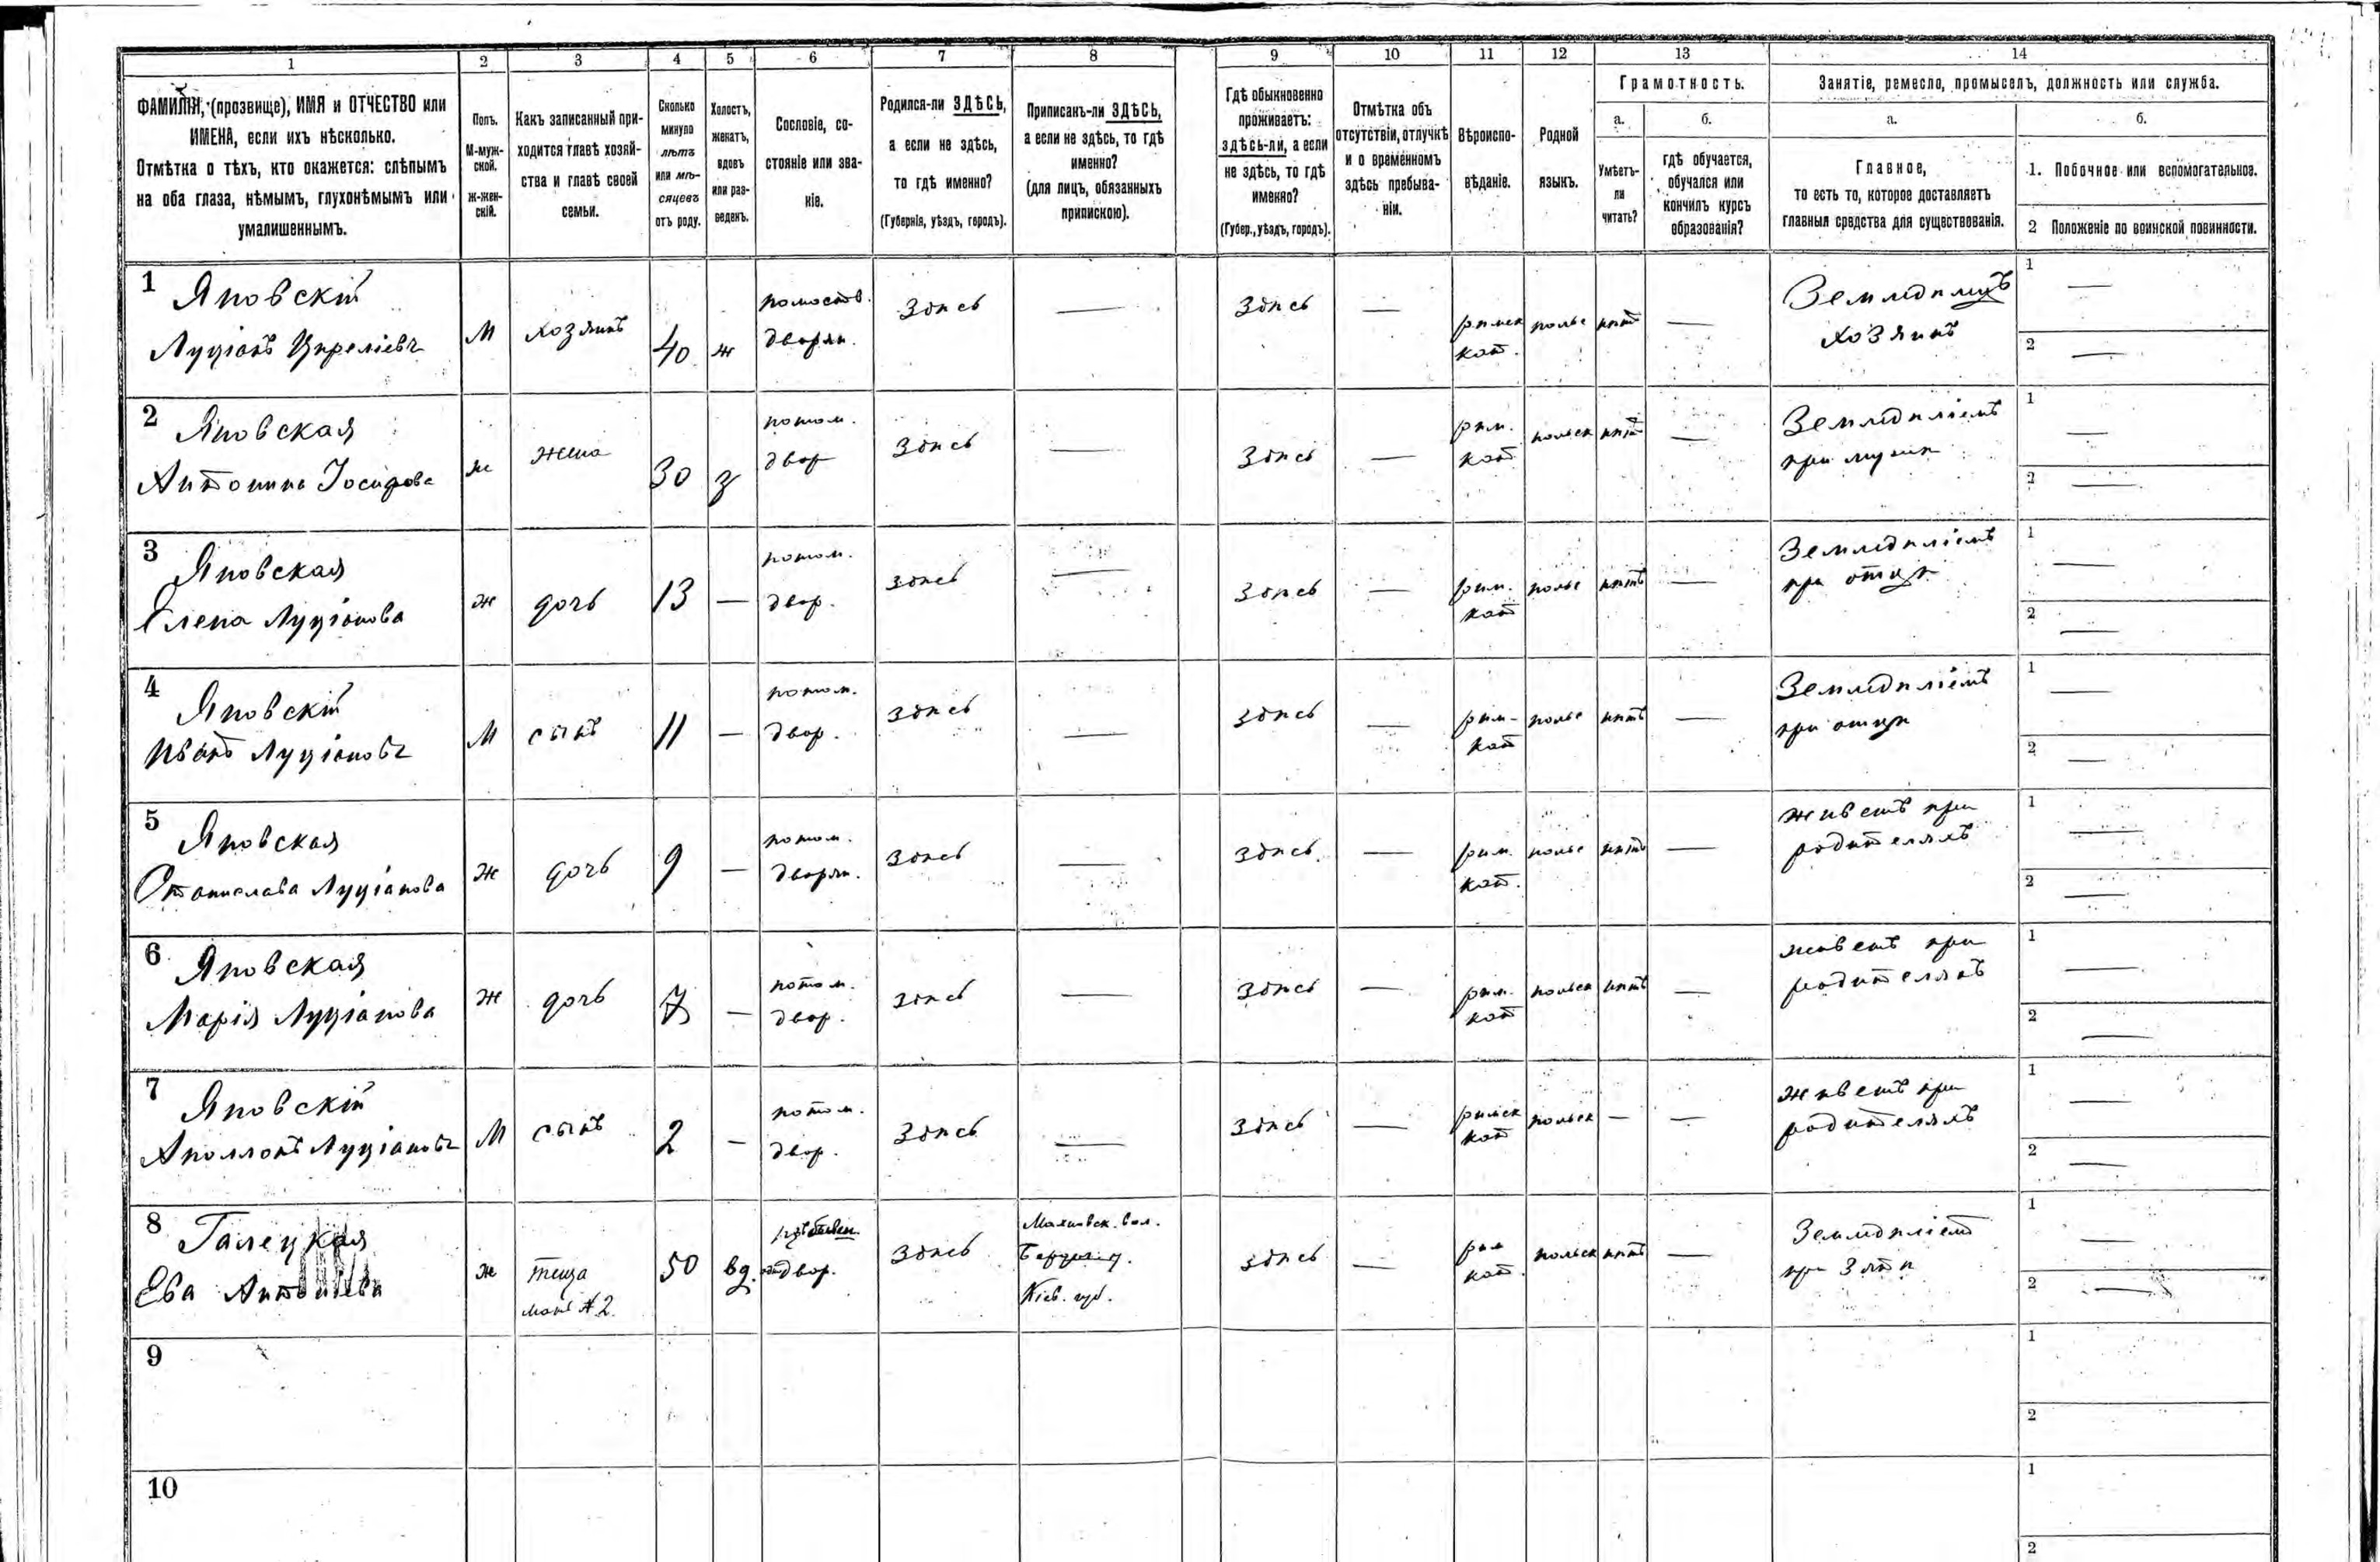 1 2 3 4 5 6 7 8 9 10 11 12 13 14
ФАМИЛІЯ, (прозвище), ИМЯ и ОТЧЕСТВО или
ИМЕНА, если ихъ нѣсколько.
Отмѣтка о тѣхъ, кто окажется: слѣпымъ
на оба глаза, нѣмымъ, глухонѣмымъ или
умалишеннымъ.
Полъ.
М-муж-
ской.
ж-жен-
скій.
Какъ записанный при-
ходится главѣ хозяй-
ства и главѣ своей
семьи.
Сколько
минуло
лѣтъ
или мѣ-
сяцевъ
отъ роду.
Холостъ,
женатъ,
вдовъ
или раз-
веденъ.
Сословіе, со-
стояніе или зва-
ніе.
Родился-ли ЗДѢСЬ,
а если не здѣсь,
то гдѣ именно?
(Губернія, уѣздъ, городъ).
Приписанъ-ли ЗДѢСЬ,
а если не здѣсь, то гдѣ
именно?
(для лицъ, обязанныхъ
припискою).
Гдѣ обыкновенно
проживаетъ:
здѣсь-ли, а если
не здѣсь, то гдѣ
именно?
(Губер., уѣздъ, городъ).
Отмѣтка объ
отсутствіи, отлучкѣ
и о временномъ
здѣсь пребыва-
ніи.
Вѣроиспо-
вѣданіе.
Родной
языкъ.
Грамотность.
а.
Умѣетъ-
ли
читать?
б.
гдѣ обучается,
обучался или
кончилъ курсъ
образованія?
Занятіе, ремесло, промыселъ, должность или служба.
а.
Главное,
то есть то, которое доставляетъ
главныя средства для существованія.
б.
1. Побочное или вспомогательное.
2 Положеніе по воинской повинности.
1 Яновскій
Луціанъ
М
хозяинъ
40
ж
дворян.
Здѣсь
—
Здѣсь
—
римск
кат.
польс
нѣтъ
—
хозяинъ
1 —
2 —
2 Яновская
Антонина Іосифова
ж
жена
30
з
потом.
двор
Здѣсь
—
Здѣсь
—
рим.
кат
польск
нѣтъ
—
Земледѣліемъ
при мужѣ
1 —
2 —
3 Яновская
Елена Луціанова
ж
дочь
13
—
потом.
двор.
здѣсь
—
здѣсь
—
рим.
кат
польс
нѣтъ
—
Земледѣліемъ
при отцѣ
1 —
2 —
4 Яновскій
Иванъ Луціановъ
М
сынъ
11
—
потом.
двор.
здѣсь
—
здѣсь
—
рим-
кат
польс
нѣтъ
—
Земледѣліемъ
при отцѣ
1 —
2 —
5 Яновская
Станислава Луціанова
ж
дочь
9
—
потом.
дворян.
здѣсь
—
здѣсь.
—
рим.
кат.
польс
нѣтъ
—
живетъ при
родителяхъ
1 —
2 —
6 Яновская
Марія Луціанова
ж
дочь
7
—
потом.
двор.
здѣсь
—
здѣсь
—
рим.
кат
польск
нѣтъ
—
живетъ при
родителяхъ
1 —
2 —
7 Яновскій
Аполлонъ Луціановъ
М
сынъ
2
—
потом.
двор.
здѣсь
—
здѣсь
—
римск
кат
польск
—
—
живетъ при
родителяхъ
1 —
2 —
8 Галецкая
Ева
ж
теща
мать №2.
50
вд.
двор.
здѣсь
Махновск. вол.
Кіев. губ.
здѣсь
—
рим
кат.
польск
нѣтъ
—
Земледѣліемъ
при Зятѣ
1 —
2 —
9
1
2
10
1
2